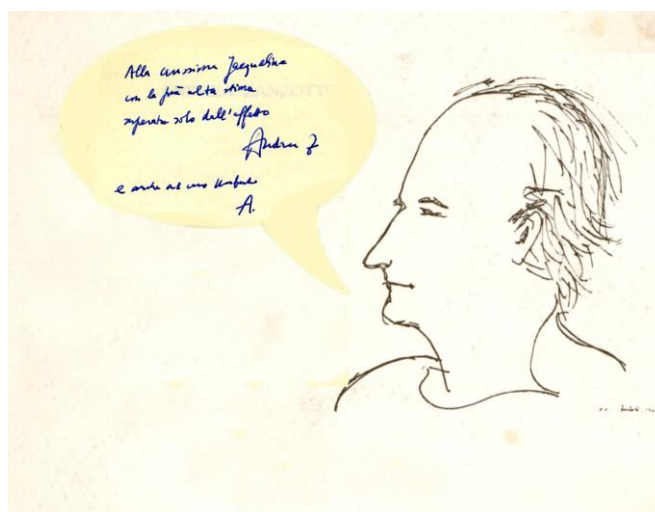 Alla carissima Jacqueline
con la più alta stima
superata solo dall'affetto
Andrea Z
e anche al caro Umberto
A.